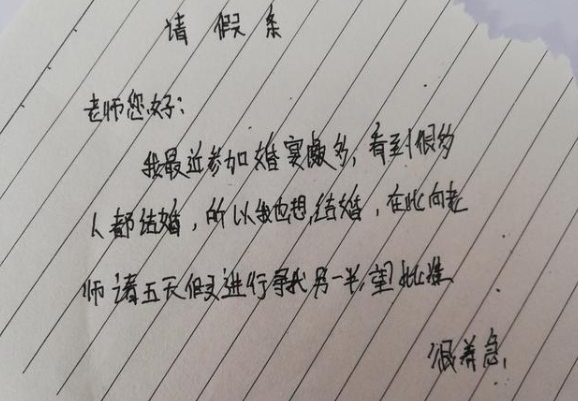 请假条
老师您好：
我最近参加婚宴颇多，看到很多
人都结婚，所以我也想结婚，在此向老
师请五天假进行寻找另一半，望批准
很着急，